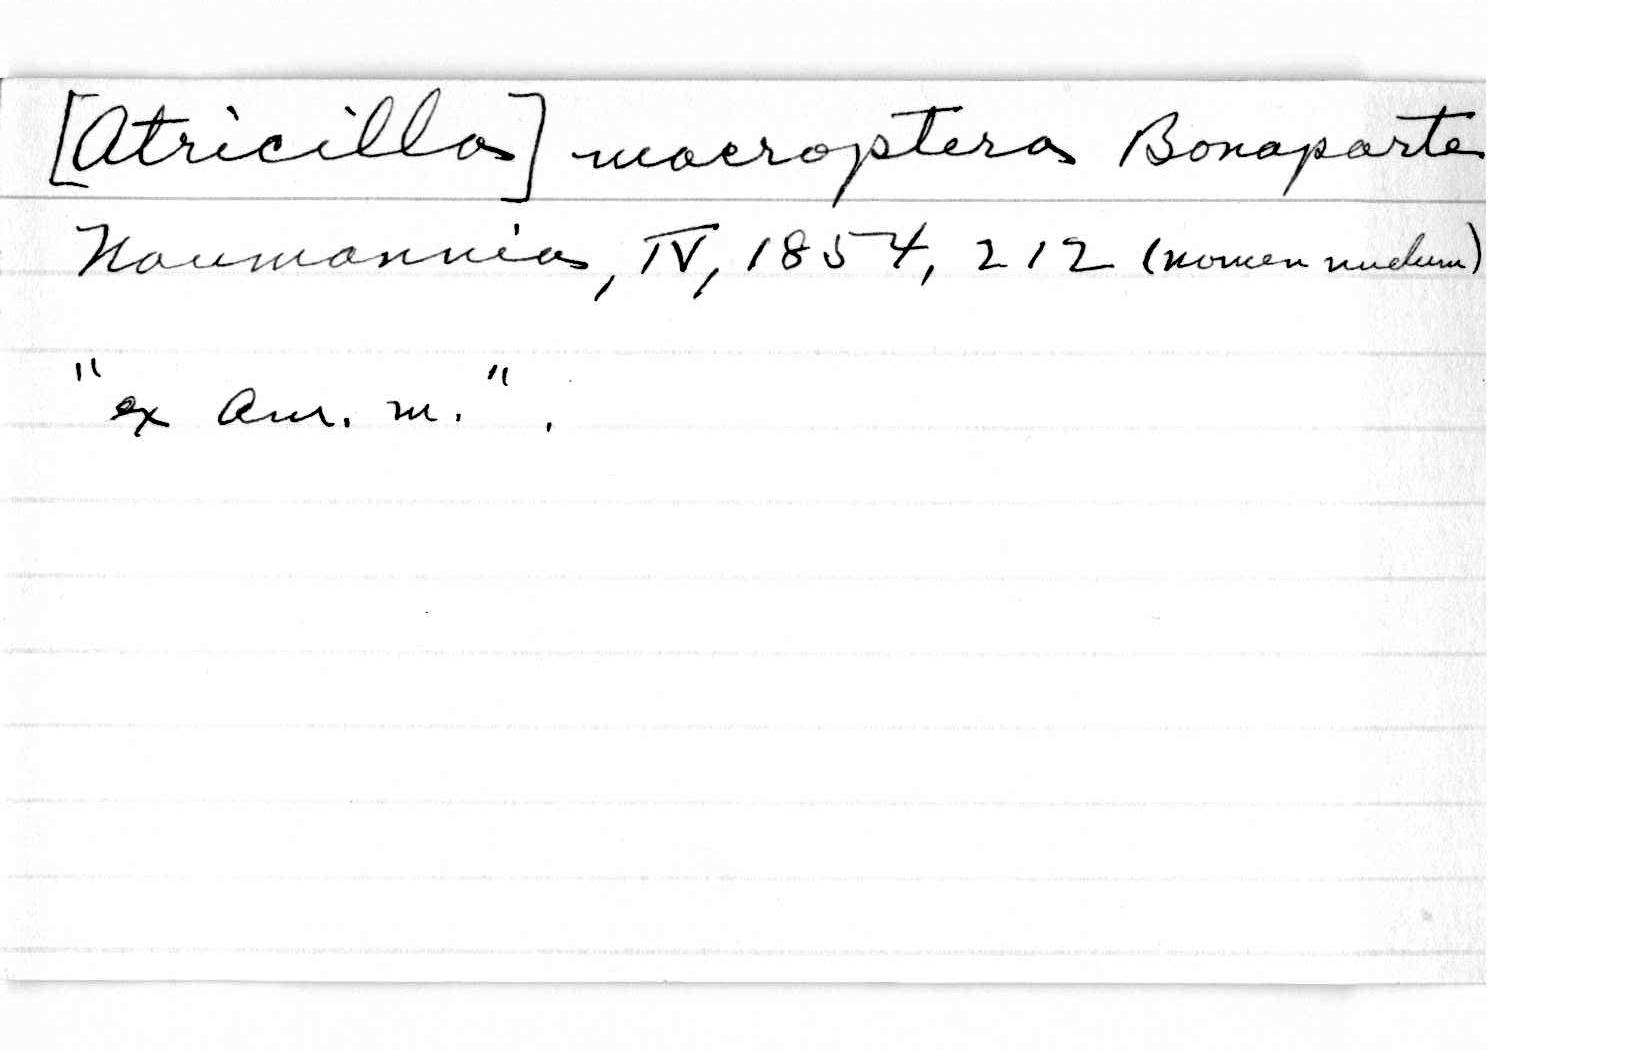 [Atricilla] macroptera Bonaparte
Naumannia, IV, 1854, 212 (nomen nudum)
"ex Am. m.".